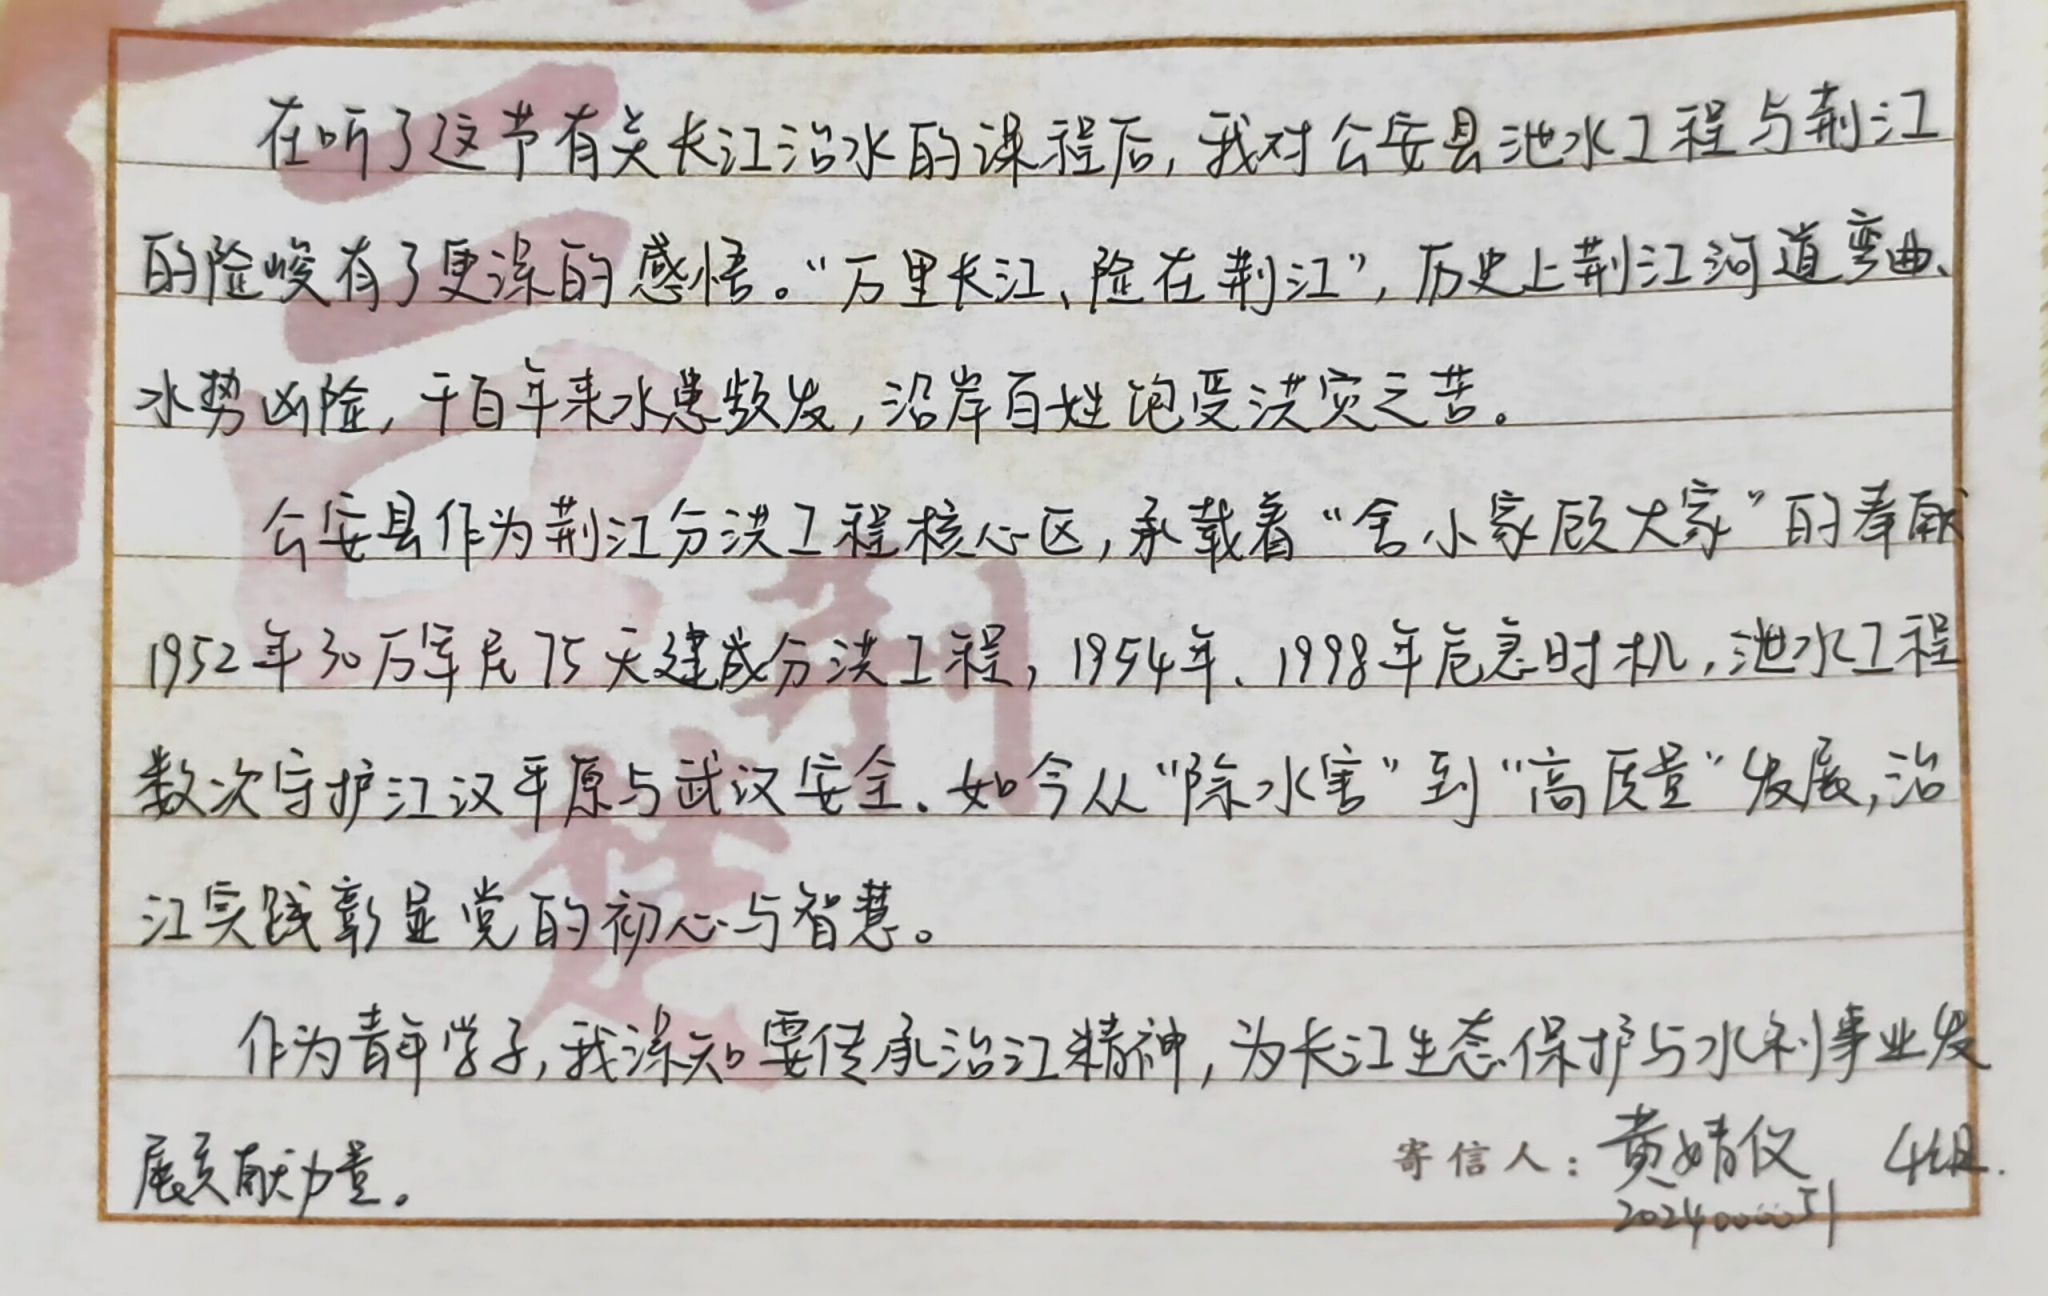 在听了这节有关长江治水的课程后,我对公安县泄水工程与荆江
的险峻有了更深的感悟。“万里长江、险在荆江”,历史上荆江河道弯曲、
水势凶险,千百年来水患频发,沿岸百姓饱受洪灾之苦。
公安县作为荆江分洪工程核心区,承载着“舍小家顾大家”的奉献
1952年30万军民75天建成分洪工程,1954年、1998年危急时机,泄水工程
数次守护江汉平原与武汉安全、如今从“除水害”到“高质量”发展,治
江实践彰显党的初心与智慧。
作为青年学子,我深知要传承治江精神,为长江生态保护与水利事业发
展贡献力量。
寄信人:黄婧仪 4组.
2024000051
荆楚